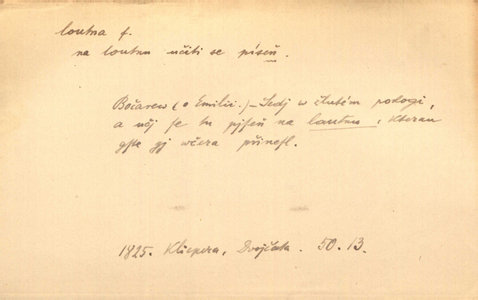 loutna f.
na loutnu učiti se píseň.
Bočarew (o Emilii.) – Sedj w člubém pokogi,
a učj se tu pjseň na lautnu, kterau
gste gj včera přinesl.
1825. Klicpera, Dvojčata. 50. 13.